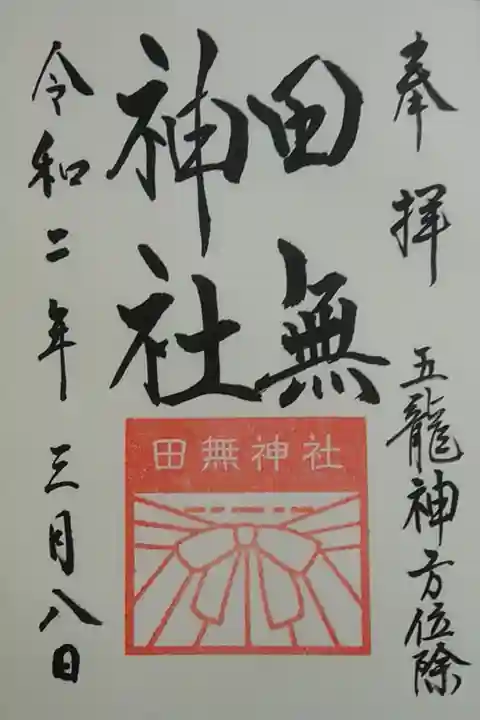 奉拝 五龍神方位除
田無
神社
令和二年三月八日
田無神社